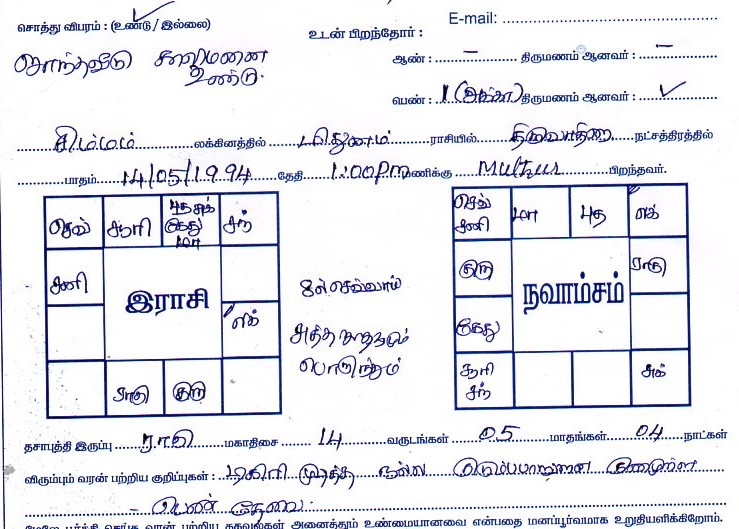 சொத்து விபரம் : (உண்டு / இல்லை)
E-mail:
உடன் பிறந்தோர் :
சொந்தவீடு
உண்டு.
ஆண் : – திருமணம் ஆனவர் : –
பெண் : 1 (அக்கா) திருமணம் ஆனவர் : ✓
சிம்மம் லக்கினத்தில் மிதுனம் ராசியில் திருவாதிரை நட்சத்திரத்தில்
பாதம் 14/05/1994 தேதி 1:00Pm மணிக்கு Muthur பிறந்தவர்.
செவ் சூரி புத சுக் கேது மா சந்
சனி
இராசி
லக்
ராகு குரு
8ல் செவ்வாய்
பொருந்தும்
செவ் சனி மா புத லக்
குரு ராகு
நவாம்சம்
கேது
சூரி சந் சுக்
தசாபுத்தி இருப்பு ராகு மகாதிசை 14 வருடங்கள் 05 மாதங்கள் 04 நாட்கள்
விரும்பும் வரன் பற்றிய குறிப்புகள் : நல்ல குடும்பபாங்கான
பெண் தேவை.
மேலே பூர்த்தி செய்த வரன் பற்றிய தகவல்கள் அனைத்தும் உண்மையானவை என்பதை மனப்பூர்வமாக உறுதியளிக்கிறோம்.